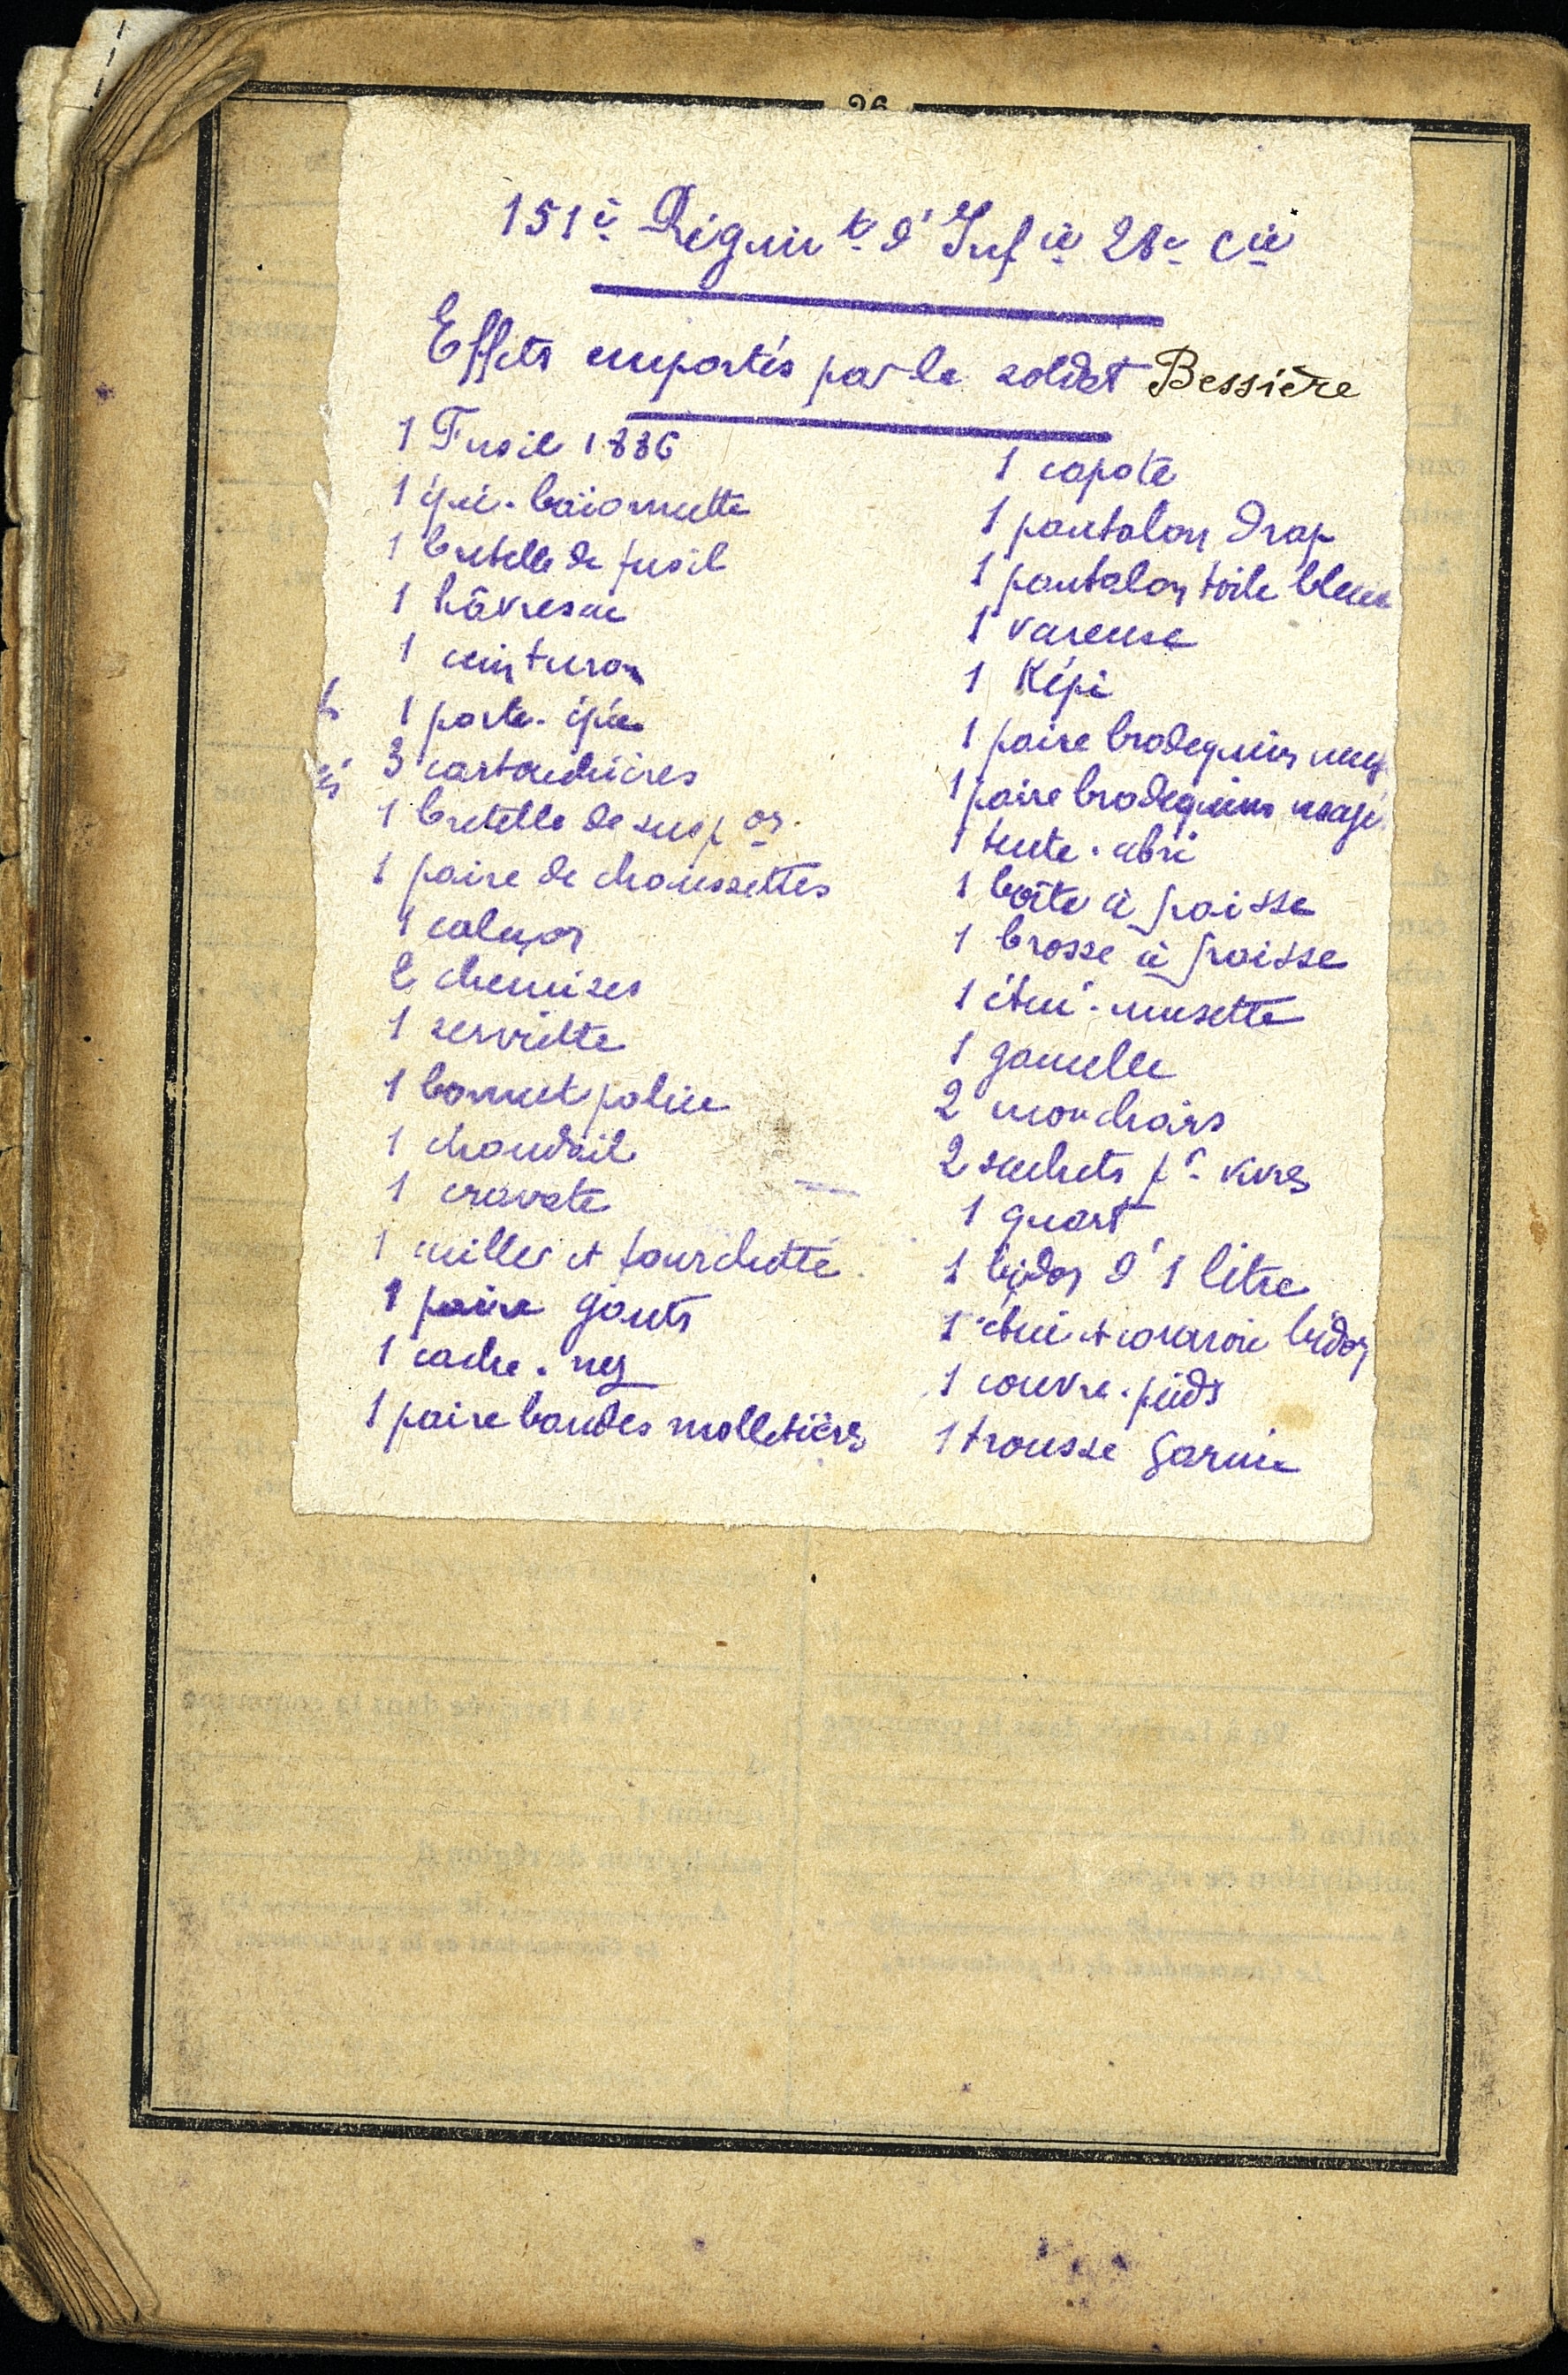 26
151è Régim t d'Inf ie 28e Cie
Effets emportés par le soldat Bessière
1 Fusil 1886
1 épée-baïonnette
1 bretelle de fusil
1 hâvresac
1 ceinturon
1 porte-épée
3 cartouchières
1 bretelle de susp on
1 paire de chaussettes
1 caleçon
2 chemises
1 serviette
1 bonnet police
1 chandail
1 cravate
1 cuiller et fourchette
1 paire gants
1 cache-nez
1 paire bandes molletières
1 capote
1 pantalon drap
1 pantalon toile bleue
1 vareuse
1 Képi
1 paire brodequins neufs
1 paire brodequins usagé
1 tente-abri
1 boîte à graisse
1 brosse à graisse
1 étui-musette
1 gamelle
2 mouchoirs
2 sachets p r vivres
1 quart
1 bidon d'1 litre
1 étui et courroie bidon
1 couvre-pieds
1 trousse garnie